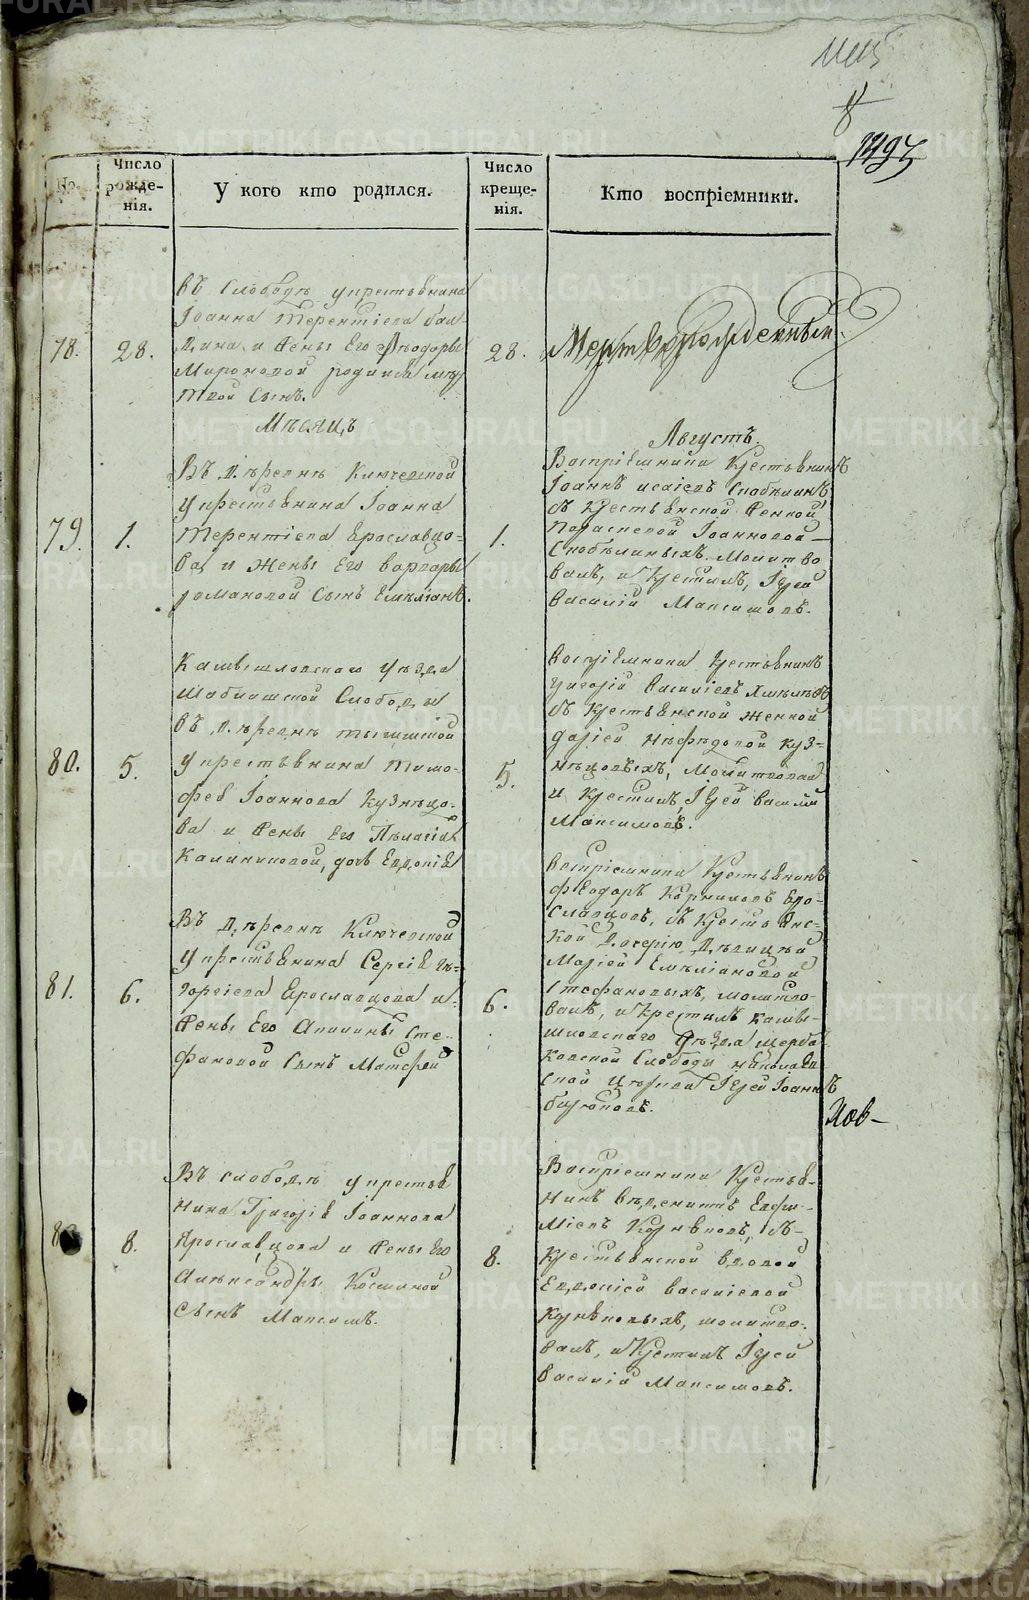 8
1495
№.
Число рожде-нія.
У кого кто родился.
Число креще-нія.
Кто воспріемники.
78.
28.
Въ Слободѣ у крестьянина
Іоанна Терентіева
и жены Его Ѳеодоры
Мироновой родился мер
твой Сынъ.
28.
Мертворожденный.
Мѣсяцъ
Августъ.
79.
1.
Въ Деревнѣ Ключевской
у крестьянина Іоанна
Терентіева Ерославцо-
ва и жены Его Варвары
Романовой Сынъ Емеліанъ.
1.
Воспріемники Крестьянинъ
Іоаннъ Исаіевъ
съ Крестьянской женкой
Параскевой Іоанновой
Молитво
валъ, и Крестилъ, Іерей
Василій Максимовъ.
80.
5.
Камышловскаго Уѣзда
Слободы
въ Деревнѣ
у крестьянина Тимо-
фея Іоаннова Кузнецо-
ва и жены Его Пелагіи
Калининовой, дочь Евдокія
5.
Воспріемники Крестьянинъ
Григорій Василіевъ
съ Крестьянской женкой
Даріей Нефедовой Куз-
нецовыхъ, Молитвовалъ
и Крестилъ Іерей Василій
Максимовъ.
81.
6.
Въ Деревнѣ Ключевской
у крестьянина Сергія Ге-
оргіева Ерославцова и
жены Его Акилины Сте-
фановой Сынъ Матфей
6.
Воспріемники Крестьянинъ
Ѳеодоръ Корниловъ Еро-
славцовъ, съ Крестьянс-
кой Дочерію Дѣвицей
Маріей Емеліановой
Стефановыхъ, молитво-
валъ, и Крестилъ Камы-
шловскаго Уѣзда
Слободы Николаев
ской Церкви Іерей Іоаннъ
Бирюковъ.
8.
Въ слободѣ у крестья
нина Григорія Іоаннова
Ярославцова и жены Его
Александры Косминой
Сынъ Максимъ.
8.
Воспріемники Крестья-
нинъ Венедиктъ Евфи-
міевъ съ
Крестьянской вдовой
Евдокіей Василіевой
молитво-
валъ, и Крестилъ Іерей
Василій Максимовъ.
METRIKI.GASO-URAL.RU